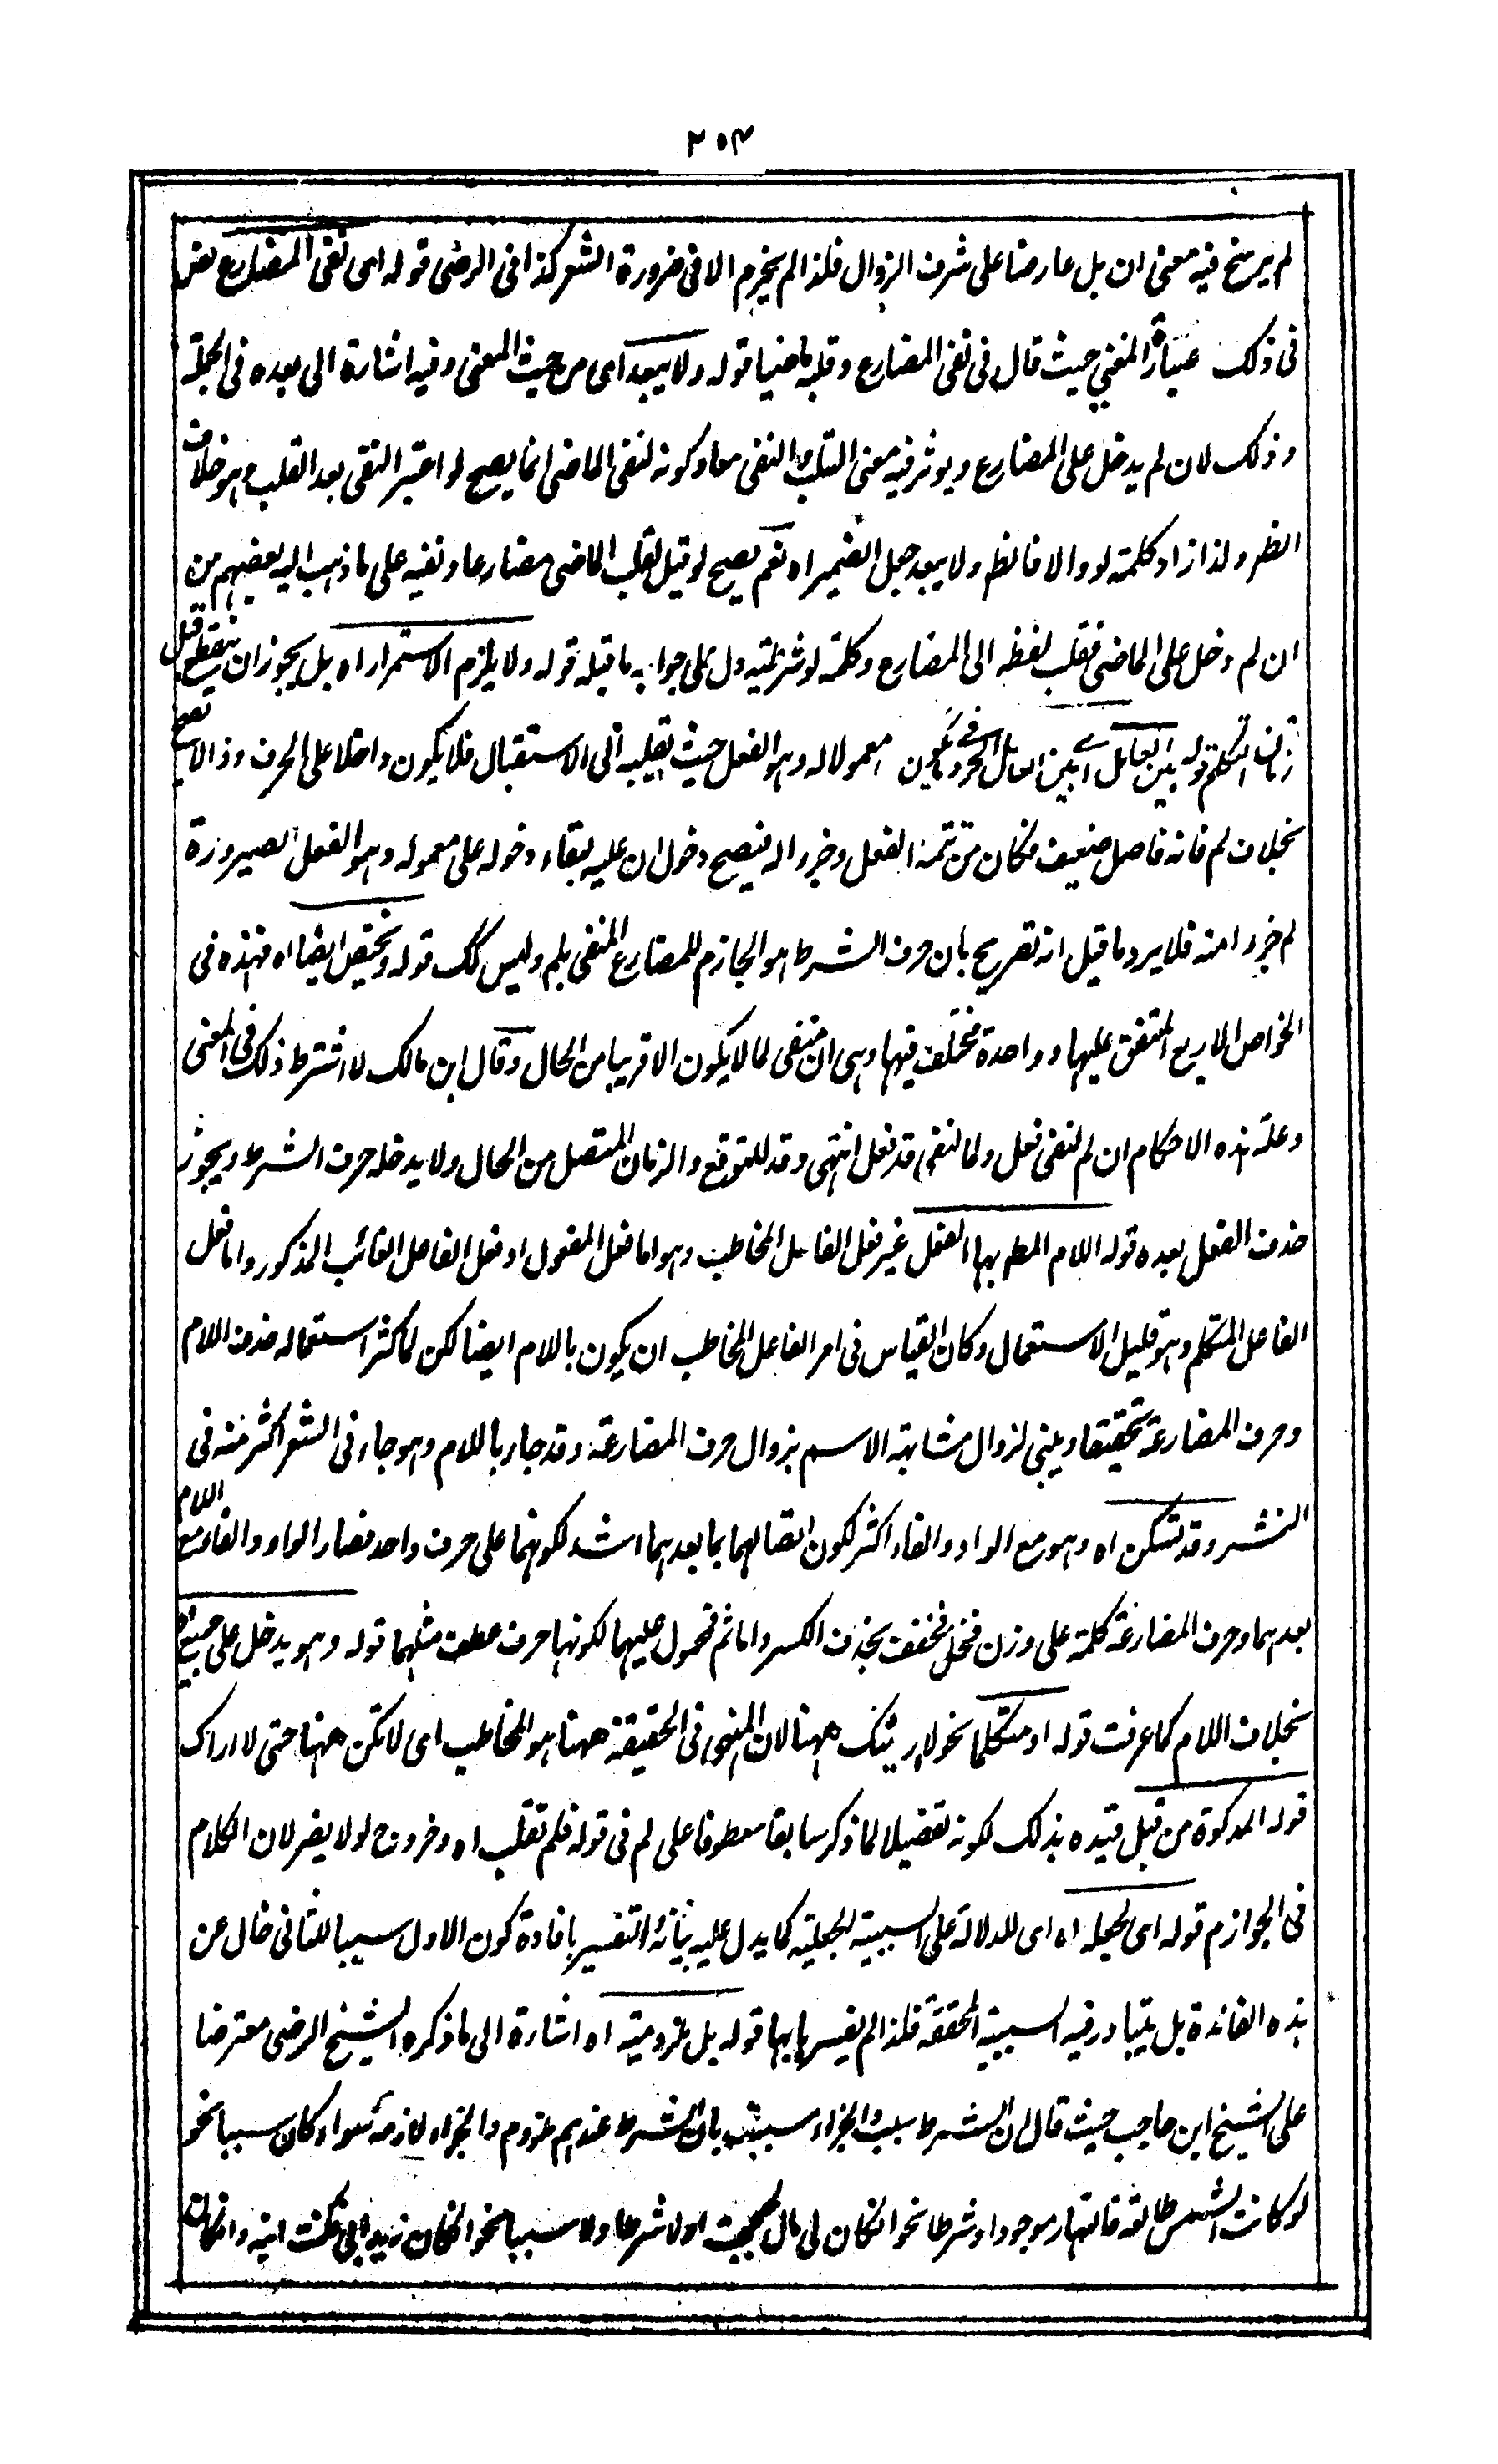 ٢٥٤
لم يرسخ فيه معنى ان بل عارضا على شرف الزوال فلذا لم يجزم الا فى ضرورة الشعر كذا فى الرضى قوله اى نفى المضارع
فى ذلك عبارة المغنى حيث قال فى نفى المضارع و قلبه ماضيا قوله ولا يبعد اى من حيث المعنى وفيه اشارة الى بعده فى الجملة
وذلك لان لم يدخل على المضارع ويوثر فيه معنى القلب والنفى معا وكونه لنفى الماضى انما يصح لو اعتبر النفى بعد القلب وهو خلاف
الظ ولذا زاد كلمة لو والا فالظ ولا يبعد جعل الضمير اه نعم يصح لو قيل لقلب الماضى مضارعا ونفيه على ما ذهب اليه بعضهم من
ان لم دخل على الماضى فقلب لفظه الى المضارع وكلمة لو شرطية دل على جوابه ما قبله قوله ولا يلزم الاستمرار اه بل يجوز ان ينقطع قبل
زمان التكلم قوله بين العامل اى بين العامل الحرفى معمولا له وهو الفعل حيث تقلبه الى الاستقبال فلا يكون داخلا على الحرف وذا لا يصح
بخلاف لم فانه فاصل ضعيف فكان من تتمة الفعل وجزءا له فيصح دخول ان عليه لبقاء دخوله على معموله وهو الفعل لصيرورة
لم جزءا منه فلا يرد ما قيل انه تصريح بان حرف الشرط هو الجازم للمضارع المنفى بلم وليس كك قوله وتختص ايضا اه فهذه فى
الخواص الاربع المتفق عليها و واحدة مختلف فيها وهى ان منفى لما لا يكون الا قريبا من الحال وقال ابن مالك لا اشترط ذلك فى المعنى
وعلة هذه الاحكام ان لم لنفى فعل ولما لنفى قد فعل انتهى وقد للتوقع والزمان المتصل من الحال ولا يدخله حرف الشرط ويجوز
حذف الفعل بعده قوله اللام المط بها الفعل غير فعل الفاعل المخاطب وهو اما فعل المفعول او فعل الفاعل الغائب المذكور واما فعل
الفاعل المتكلم وهو قليل الاستعمال وكان القياس فى امر الفاعل المخاطب ان يكون باللام ايضا لكن لما كثر استعماله حذف اللام
وحرف المضارعة تخفيفا وبنى لزوال مشابهة الاسم بزوال حرف المضارعة وقد جاء باللام وهو جاء فى الشعر اكثر منه فى
النثر وقد تسكن اه وهو مع الواو والفاء اكثر لكون اتصالهما بما بعدهما اشد لكونهما على حرف واحد فصار الواو والفاء مع اللام
بعدهما وحرف المضارعة كلمة على وزن فخذ فخفف بحذف الكسر واما ثم فمحمول عليهما لكونها حرف عطف مثلهما قوله وهو يدخل على جميع
بخلاف اللام كما عرفت قوله او متكلما نحو لا رينك ههنا لان المنهى فى الحقيقة ههنا هو المخاطب اى لا تكن ههنا حتى لا اراك
قوله المذكورة من قبل قيده بذلك لكونه تفصيلا لما ذكر سابقا معطوفا على لم فى قوله فلم تقلب اه وخروج لو لا يضر لان الكلام
فى الجوازم قوله اى لجعله اه اى للدلالة على السببية الجعلية كما يدل عليه بيانه التفسير بافادة كون الاول سببا للثانى خال عن
هذه الفائدة بل يتبادر فيه السببية المحققة فلذا لم يفسرها بها قوله بل ملزومية اه اشارة الى ما ذكره الشيخ الرضى معترضا
على الشيخ ابن حاجب حيث قال ان الشرط سبب والجزاء مسبب بان الشرط عندهم ملزوم والجزاء لازمه سواء كان سببا نحو
لو كانت الشمس طالعة فالنهار موجود او شرطا نحو ان كان لى مال لحججت او لا شرطا ولا سببا نحو ان كان زيد ابى فكنت ابنه وان كان